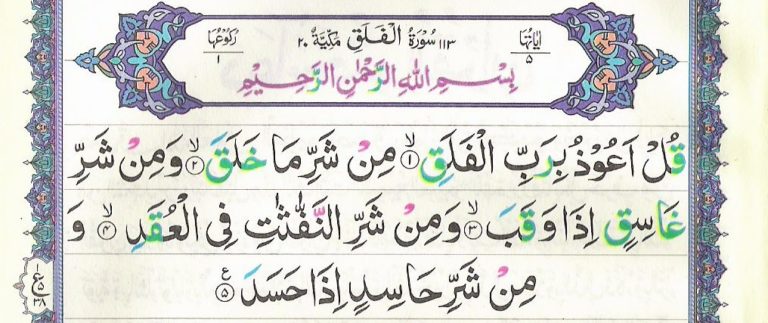 اٰيَاتُهَا ٥ ١١٣ سُوْرَةُ الْفَلَقِ مَكِّيَّةٌ ٢٠ رُكُوْعُهَا ١
بِسْمِ اللّٰهِ الرَّحْمٰنِ الرَّحِيْمِ
قُلْ اَعُوْذُ بِرَبِّ الْفَلَقِ ۙ﴿١﴾ مِنْ شَرِّ مَا خَلَقَ ۙ﴿٢﴾ وَمِنْ شَرِّ
غَاسِقٍ اِذَا وَقَبَ ۙ﴿٣﴾ وَمِنْ شَرِّ النَّفّٰثٰتِ فِى الْعُقَدِ ۙ﴿٤﴾ وَ
مِنْ شَرِّ حَاسِدٍ اِذَا حَسَدَ ﴿٥﴾ ع
ع ١ ٥ ٣٨